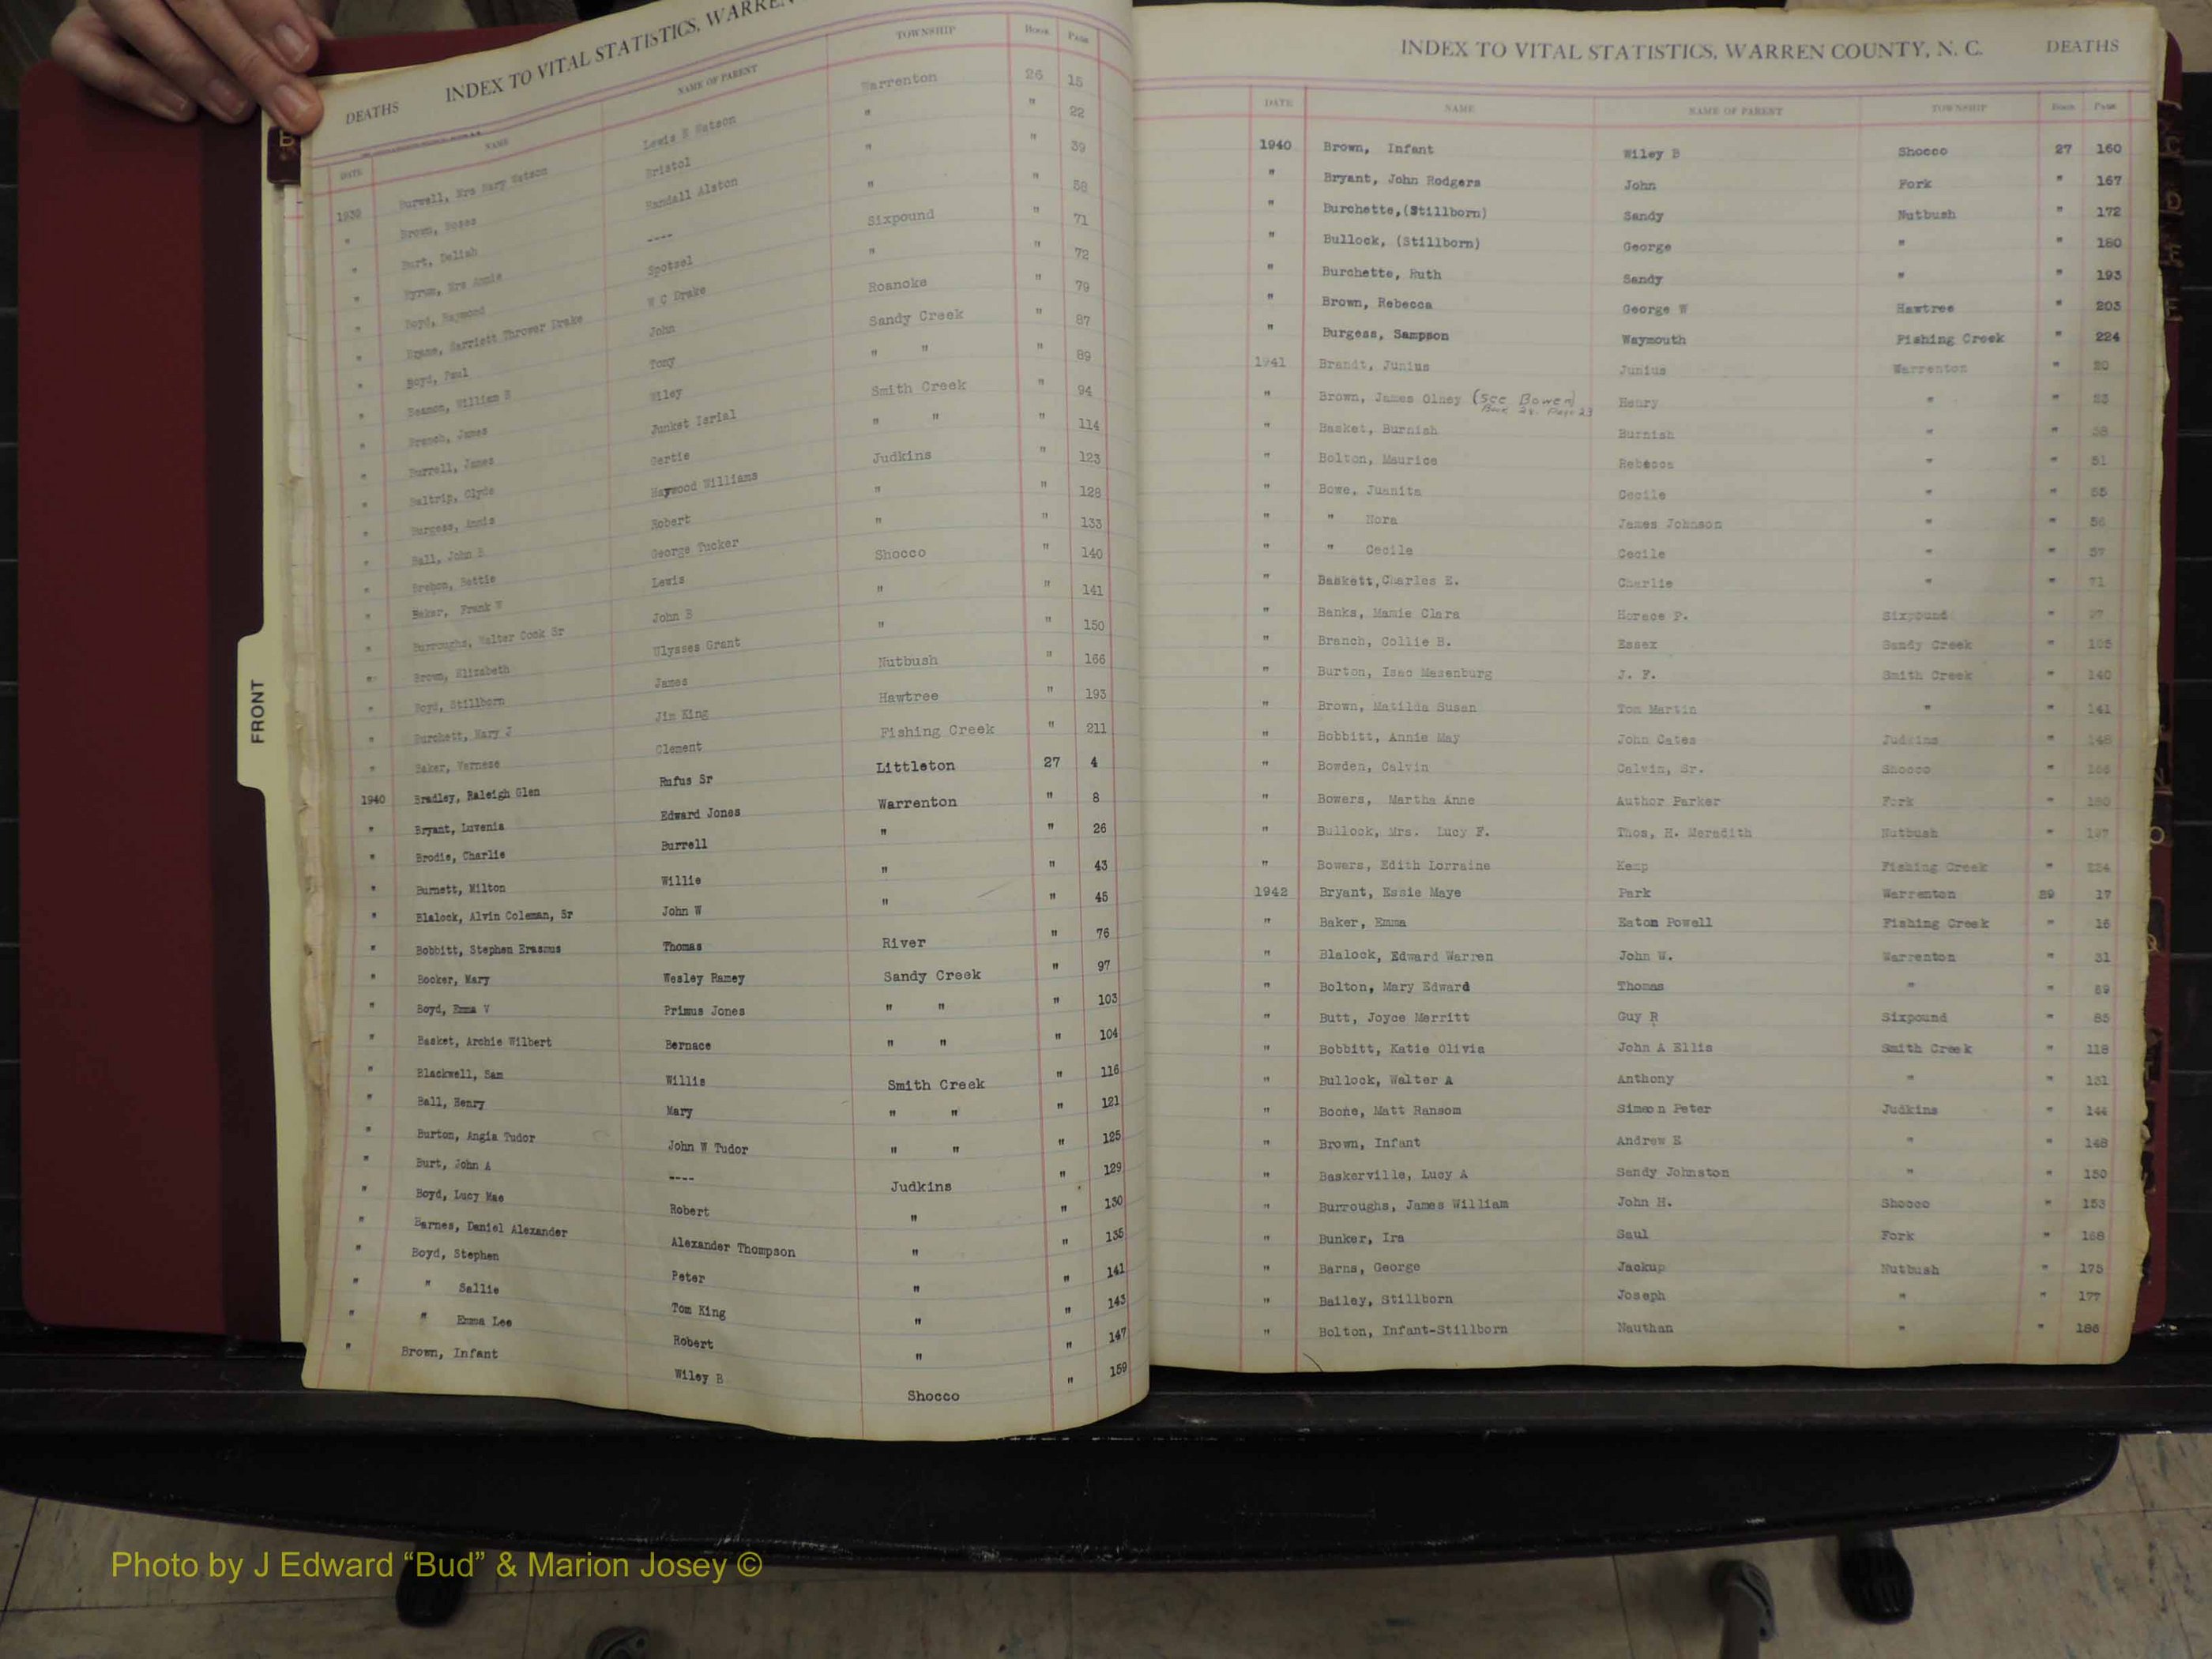 DEATHS INDEX TO VITAL STATISTICS, WARREN
DATE NAME NAME OF PARENT TOWNSHIP Book Page
1939 Burwell, Mrs Mary Watson Lewis B Watson Warrenton 26 15
" Brown, Moses Bristol " " 22
" Burt, Deliah Randall Alston " " 39
" Byrum, Mrs Annie ---- " " 58
" Boyd, Raymond Spotsel Sixpound " 71
" Harriett Thrower Drake W C Drake " " 72
" Boyd, Paul John Roanoke " 79
" Beamon, William H Tony Sandy Creek " 87
" Branch, James Wiley " " " 89
" Burrell, James Junket Isrial Smith Creek " 94
" Baltrip, Clyde Gertie " " " 114
" Burgess, Annie Haywood Williams Judkins " 123
" Ball, John B Robert " " 128
" Brehon, Bettie George Tucker " " 133
" Baker, Frank W Lewis Shocco " 140
" Burroughs, Walter Cook Sr John B " " 141
" Brown, Elizabeth Ulysses Grant " " 150
" Boyd, Stillborn James Nutbush " 166
" Burchett, Mary J Jim King Hawtree " 193
" Baker, Vernese Clement Fishing Creek " 211
1940 Bradley, Raleigh Glen Rufus Sr Littleton 27 4
" Bryant, Luvenia Edward Jones Warrenton " 8
" Brodie, Charlie Burrell " " 26
" Burnett, Milton Willie " " 43
" Blalock, Alvin Coleman, Sr John W " " 45
" Bobbitt, Stephen Erasmus Thomas River " 76
" Booker, Mary Wesley Ramey Sandy Creek " 97
" Boyd, Emma V Primus Jones " " " 103
" Basket, Archie Wilbert Bernace " " " 104
" Blackwell, Sam Willis Smith Creek " 116
" Ball, Henry Mary " " " 121
" Burton, Angia Tudor John W Tudor " " " 125
" Burt, John A ---- Judkins " 129
" Boyd, Lucy Mae Robert " " 130
" Barnes, Daniel Alexander Alexander Thompson " " 135
" Boyd, Stephen Peter " " 141
" " Sallie Tom King " " 143
" " Emma Lee Robert " " 147
" Brown, Infant Wiley B Shocco " 159
INDEX TO VITAL STATISTICS, WARREN COUNTY, N. C. DEATHS
DATE NAME NAME OF PARENT TOWNSHIP Book Page
1940 Brown, Infant Wiley B Shocco 27 160
" Bryant, John Rodgers John Fork " 167
" Burchette,(Stillborn) Sandy Nutbush " 172
" Bullock, (Stillborn) George " " 180
" Burchette, Ruth Sandy " " 193
" Brown, Rebecca George W Hawtree " 203
" Burgess, Sampson Waymouth Fishing Creek " 224
1941 Brandt, Junius Junius Warrenton " 20
" Brown, James Olney (See Bowen) Henry " " 23
Book 28. Page 23
" Basket, Burnish Burnish " " 38
" Bolton, Maurice Rebecca " " 51
" Bowe, Juanita Cecile " " 55
" " Nora James Johnson " " 56
" " Cecile Cecile " " 57
" Baskett,Charles E. Charlie " " 71
" Banks, Mamie Clara Horace P. Sixpound " 97
" Branch, Collie B. Essex Sandy Creek "
" Burton, Isac Masenburg J. F. Smith Creek " 140
" Brown, Matilda Susan Tom Martin " " 141
" Bobbitt, Annie May John Cates Judkins " 148
" Bowden, Calvin Calvin, Sr. Shocco "
" Bowers, Martha Anne Author Parker Fork "
" Bullock, Mrs. Lucy F. Thos, H. Meredith Nutbush "
" Bowers, Edith Lorraine Kemp Fishing Creek " 224
1942 Bryant, Essie Maye Park Warrenton 29 17
" Baker, Emma Eaton Powell Fishing Creek " 16
" Blalock, Edward Warren John W. Warrenton " 31
" Bolton, Mary Edward Thomas " "
" Butt, Joyce Merritt Guy R Sixpound " 85
" Bobbitt, Katie Olivia John A Ellis Smith Creek " 118
" Bullock, Walter A Anthony " " 131
" Boone, Matt Ransom Simeon Peter Judkins " 144
" Brown, Infant Andrew E " " 148
" Baskerville, Lucy A Sandy Johnston " " 150
" Burroughs, James William John H. Shocco " 153
" Bunker, Ira Saul Fork " 168
" Barns, George Jackup Nutbush " 175
" Bailey, Stillborn Joseph " " 177
" Bolton, Infant-Stillborn Nauthan " " 186
FRONT
Photo by J Edward “Bud” & Marion Josey ©